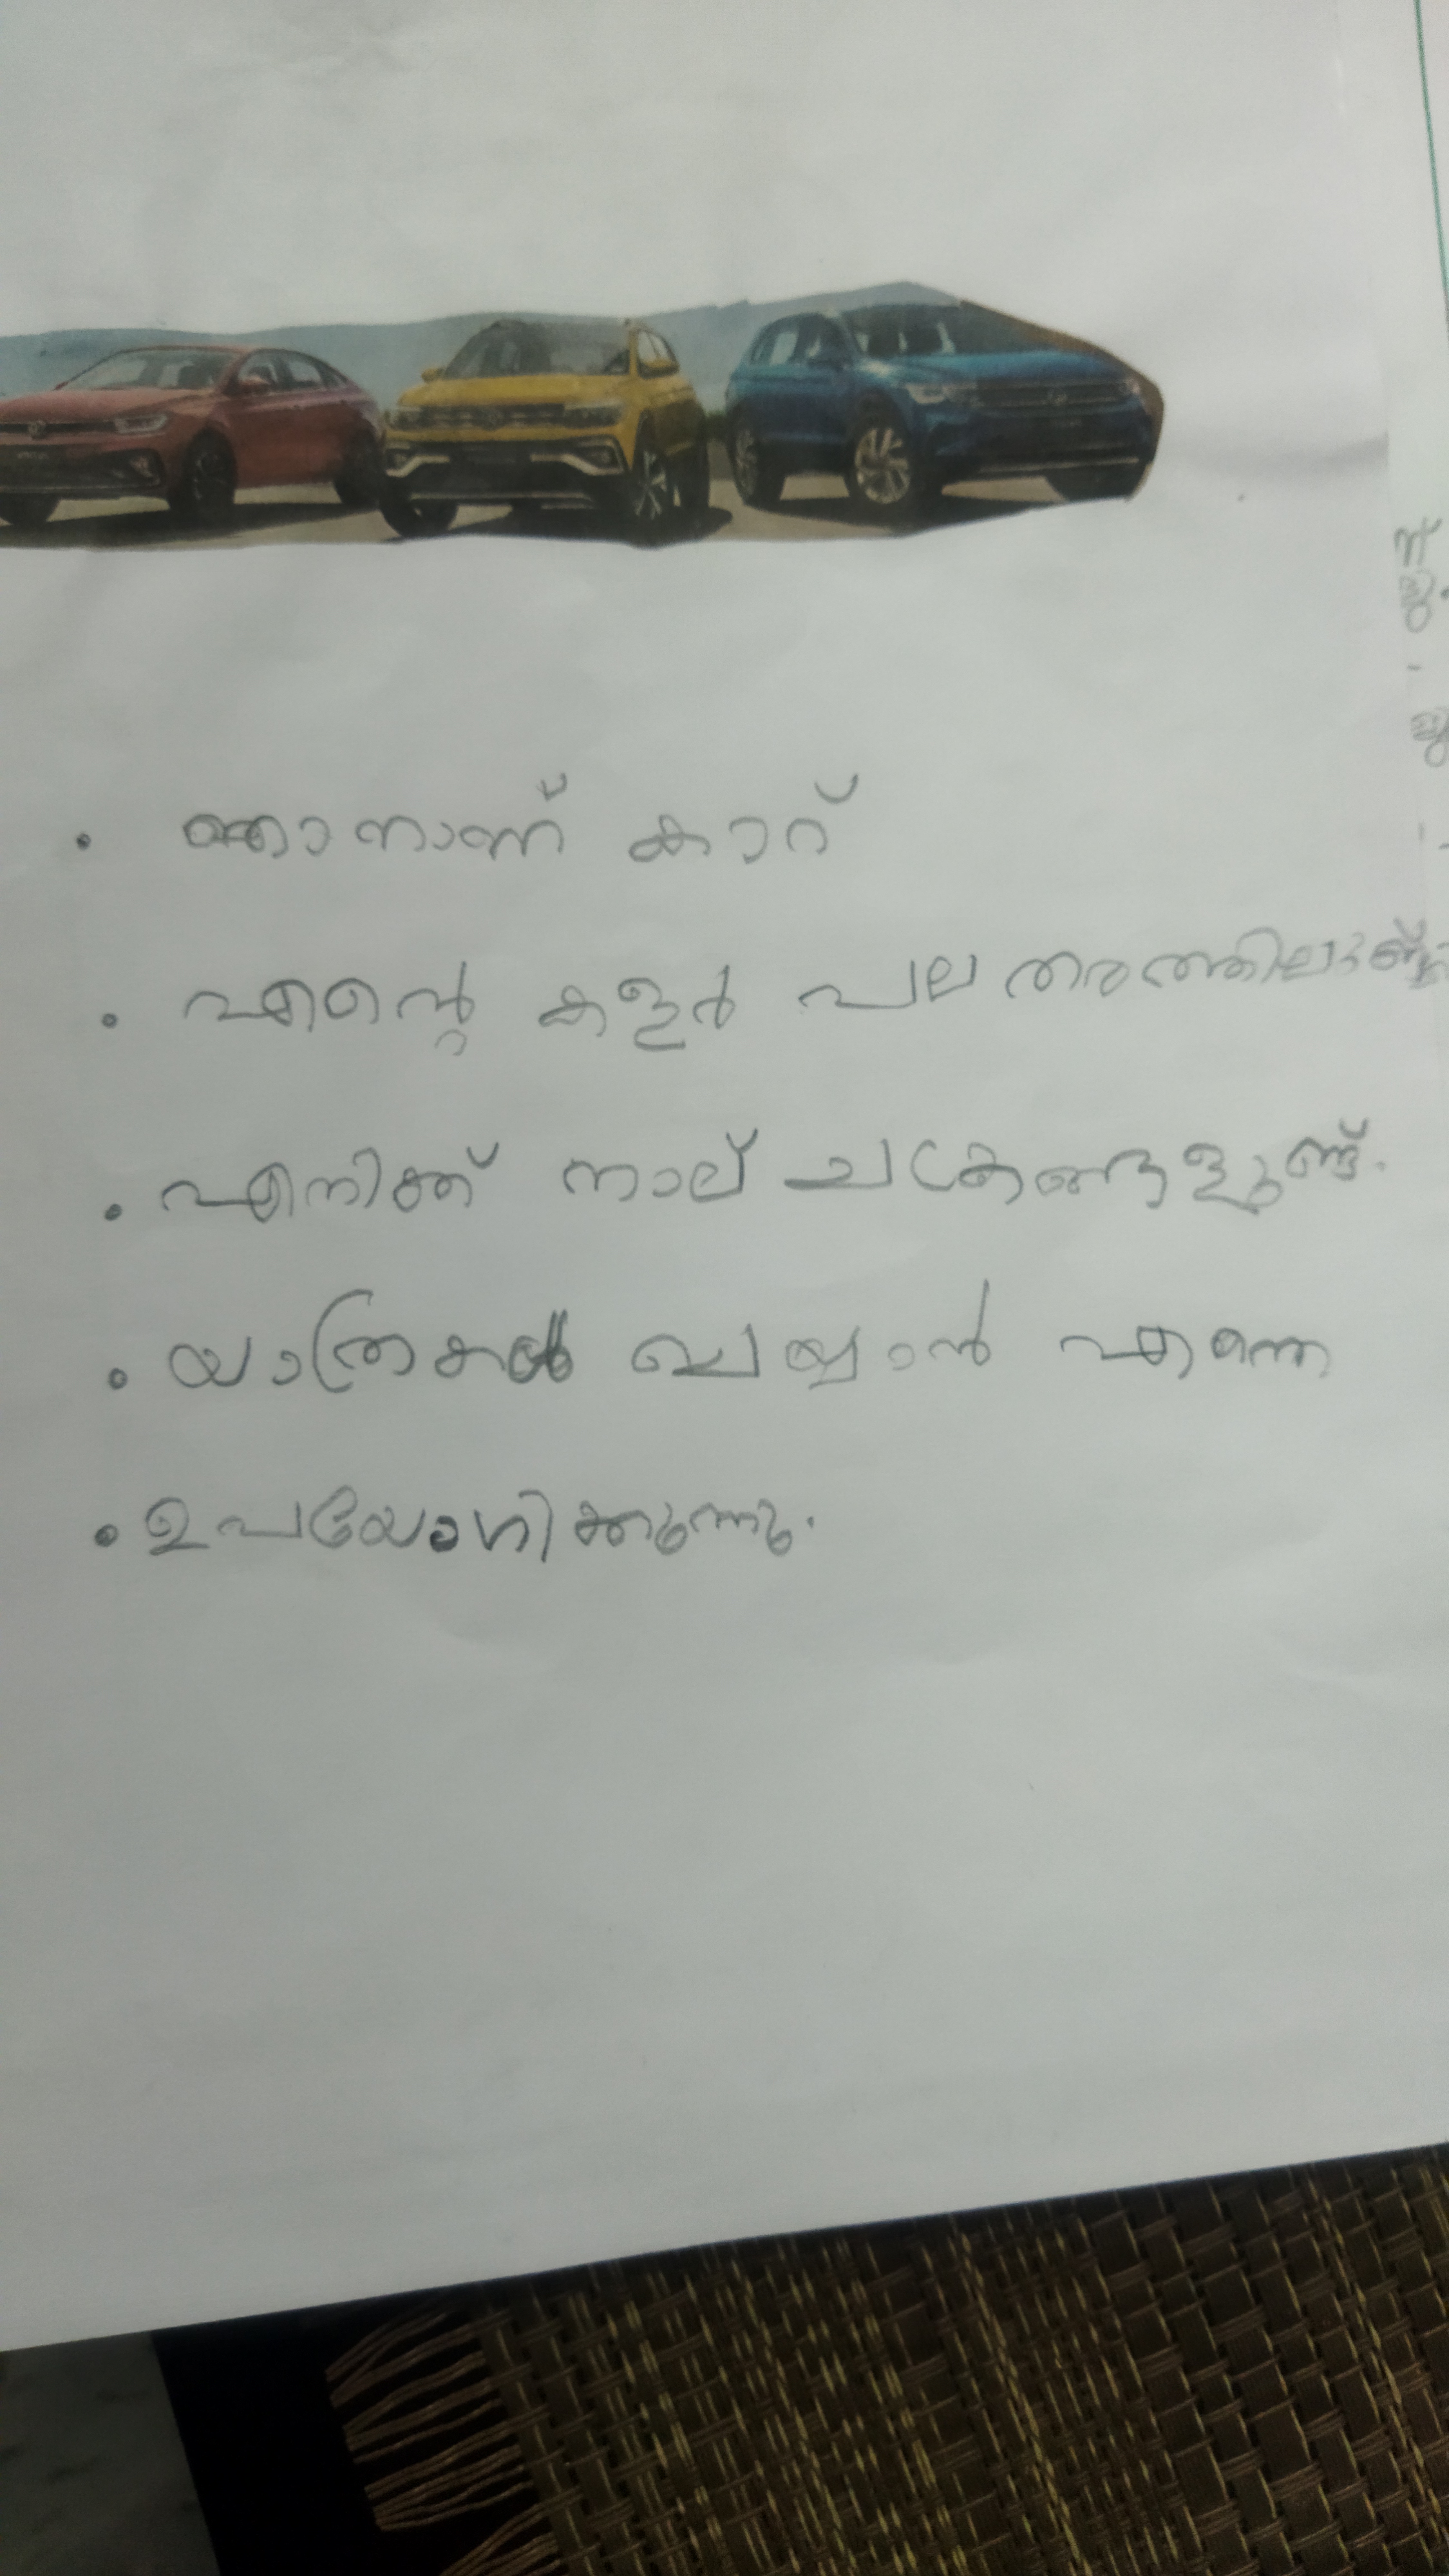 • ഞാനാണ് കാറ്
• എന്റെ കളർ പല തരത്തിലുണ്ട്
• എനിക്ക് നാല് ചക്രങ്ങളുണ്ട്.
• യാത്രകൾ ചെയ്യാൻ എന്നെ
• ഉപയോഗിക്കുന്നു.